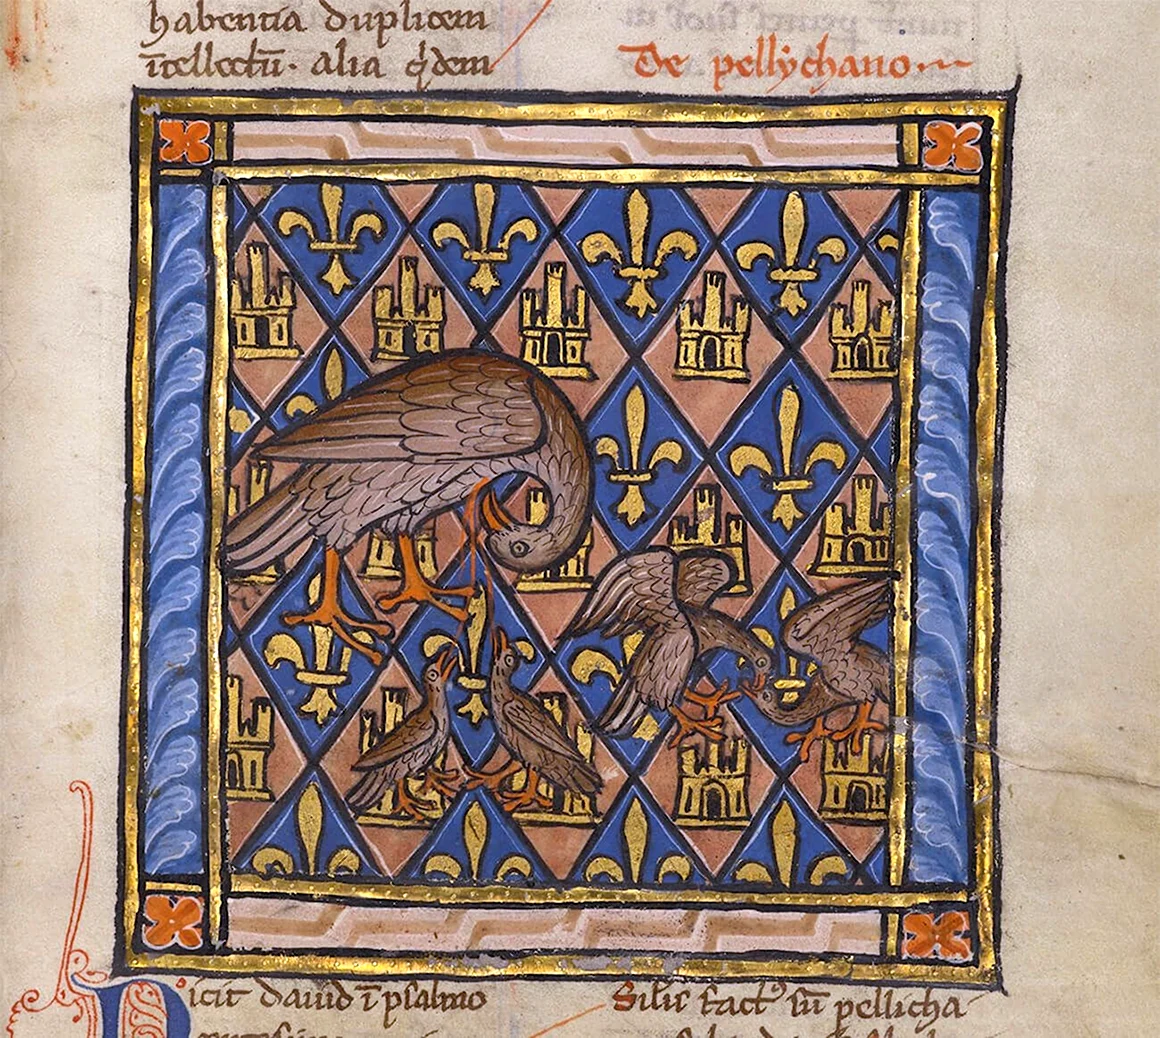 habentia duplicem
ītellectū· alia q̇dem
De pellychano
Dicit dauid ī psalmo
Silis fact' sū pellicha